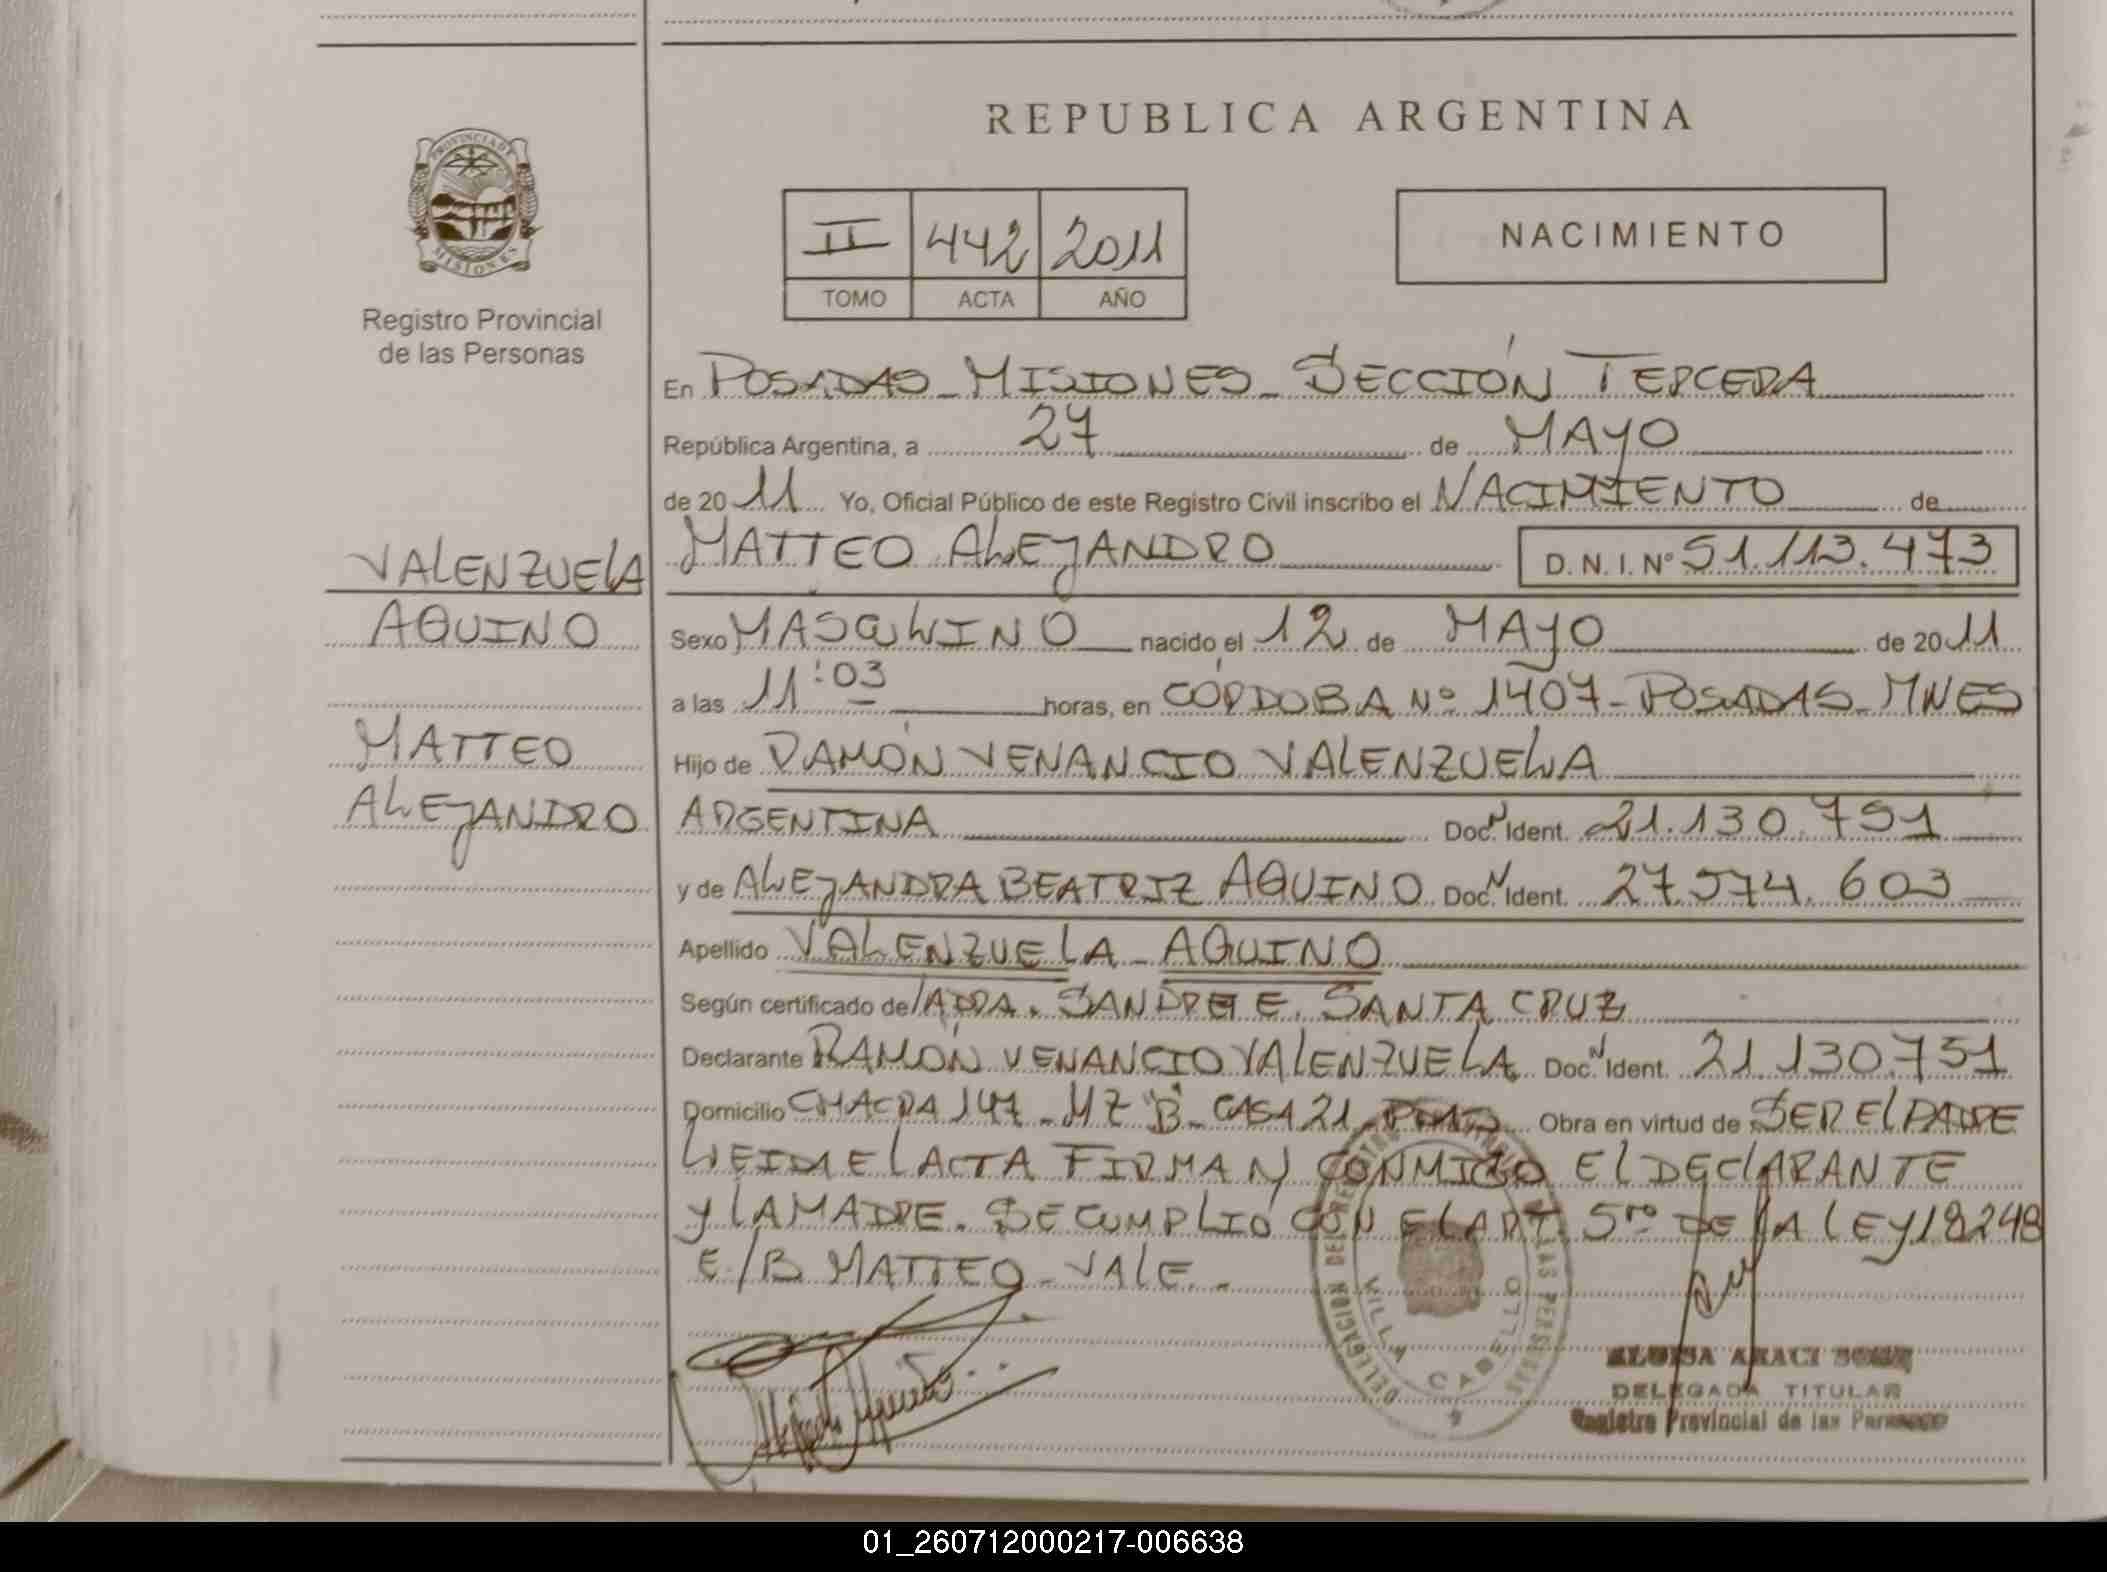 REPUBLICA ARGENTINA
PROVINCIA DE MISIONES
Registro Provincial
de las Personas
II 442 2011
TOMO ACTA AÑO
NACIMIENTO
En POSADAS - MISIONES - SECCIÓN TERCERA
República Argentina, a 27 de MAYO
de 2011 Yo, Oficial Público de este Registro Civil inscribo el NACIMIENTO de
VALENZUELA
AQUINO
MATTEO
ALEJANDRO
MATTEO ALEJANDRO D.N.I. Nº 51.113.473
Sexo MASCULINO nacido el 12 de MAYO de 2011
a las 11:03 horas, en CÓRDOBA Nº 1407 - POSADAS - MNES
Hijo de RAMÓN VENANCIO VALENZUELA
ARGENTINA Doc. N Ident. 21.130.751
y de ALEJANDRA BEATRIZ AQUINO Doc. N Ident. 27.574.603
Apellido VALENZUELA - AQUINO
Según certificado de SANTA CRUZ
Declarante RAMÓN VENANCIO VALENZUELA Doc. N Ident. 21.130.751
Domicilio CHACRA 147 - MZ "B" - CASA 21 - Obra en virtud de SER EL PADRE
LEIDA EL ACTA FIRMAN CONMIGO EL DECLARANTE
Y LA MADRE. SE CUMPLIÓ CON EL ART 5ro DE LA LEY 18248
E/B MATTEO - VALE -
VILLA CABELLO
DELEGADA TITULAR
Registro Provincial de las Personas
01_260712000217-006638